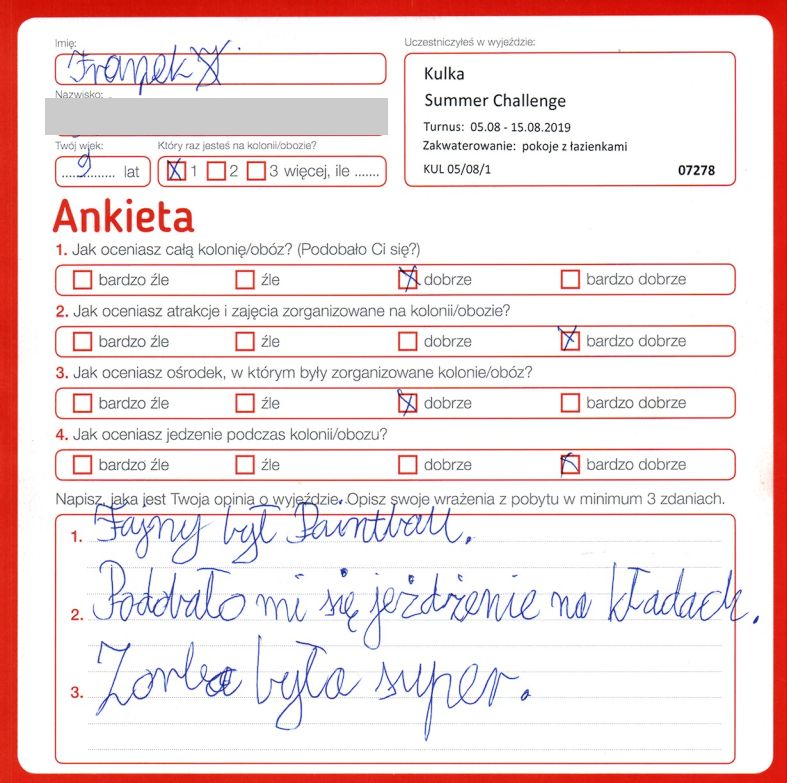 Imię:
Franek
Nazwisko:
Twój wiek:
9 lat
Który raz jesteś na kolonii/obozie?
1 2 3 więcej, ile .......
Uczestniczyłeś w wyjeździe:
Kulka
Summer Challenge
Turnus: 05.08 - 15.08.2019
Zakwaterowanie: pokoje z łazienkami
KUL 05/08/1 07278
Ankieta
1. Jak oceniasz całą kolonię/obóz? (Podobało Ci się?)
bardzo źle źle dobrze bardzo dobrze
2. Jak oceniasz atrakcje i zajęcia zorganizowane na kolonii/obozie?
bardzo źle źle dobrze bardzo dobrze
3. Jak oceniasz ośrodek, w którym były zorganizowane kolonie/obóz?
bardzo źle źle dobrze bardzo dobrze
4. Jak oceniasz jedzenie podczas kolonii/obozu?
bardzo źle źle dobrze bardzo dobrze
Napisz, jaka jest Twoja opinia o wyjeździe. Opisz swoje wrażenia z pobytu w minimum 3 zdaniach.
1. Fajny był Paintball.
2. Podobało mi się jeżdżenie na kładach.
3. Zorba była super.